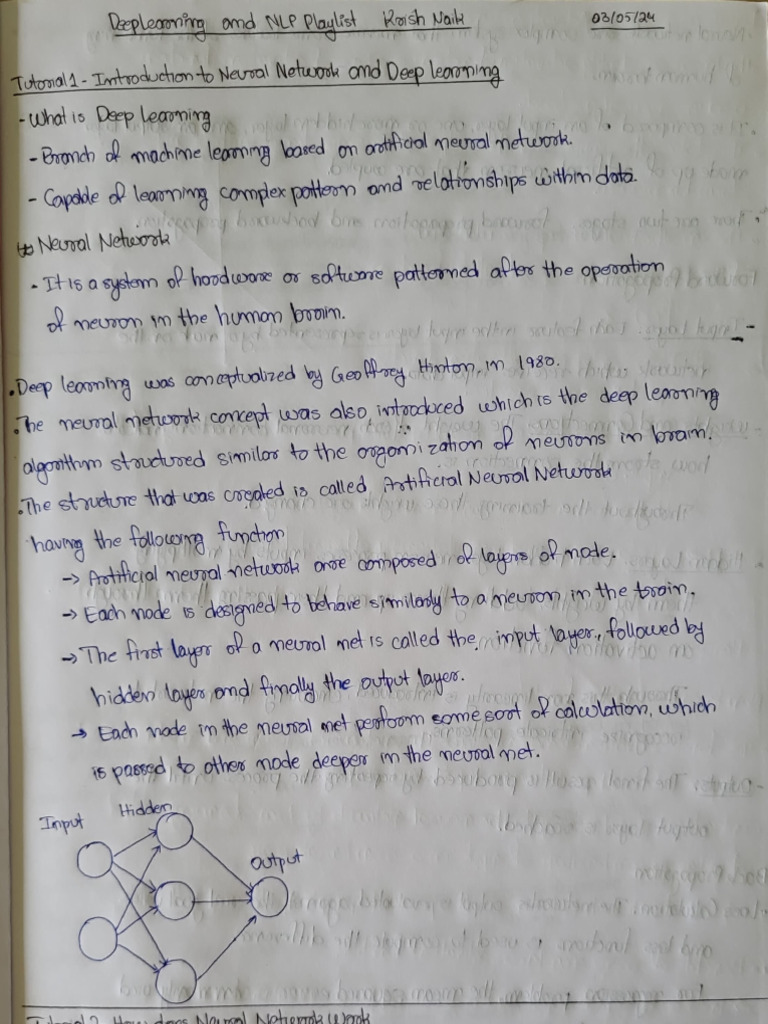 Deeplearning and NLP Playlist Krish Naik 03/05/24
Tutorial 1 - Introduction to Neural Network and Deep learning
- What is Deep learning
- Branch of machine learning based on artificial neural network.
- Capable of learning complex pattern and relationships within data.
Neural Network
- It is a system of hardware or software patterned after the operation
of neuron in the human brain.
• Deep learning was conceptualized by Geoffrey Hinton, in 1980.
• The neural network concept was also introduced which is the deep learning
algorithm structured similar to the organization of neurons in brain.
• The structure that was created is called Artificial Neural Network
having the following function
→ Artificial neural network are composed of layers of node.
→ Each node is designed to behave similarly to a neuron in the brain.
→ The first layer of a neural net is called the input layer, followed by
hidden layer and finally the output layer.
→ Each node in the neural net perform some sort of calculation, which
is passed to other node deeper in the neural net.
Input Hidden
Output
Tutorial 2 How does Neural Network Work